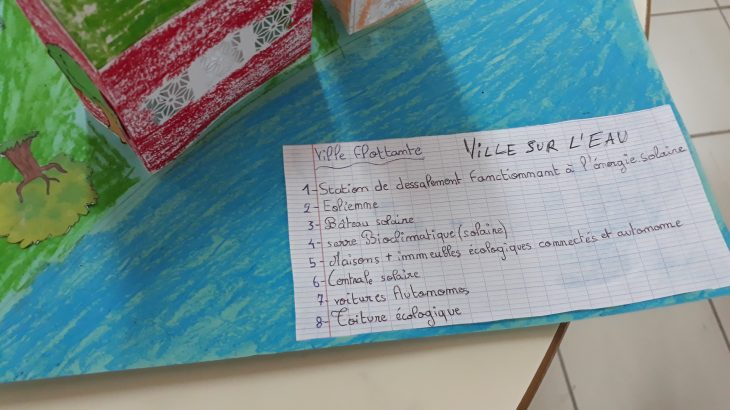 Ville flottante
VILLE SUR L'EAU
1- Station de dessalement Fonctionnant à l'énergie solaire
2- Eoliemme
3- Bâteau solaire
4- serre Bioclimatique (solaire)
5- Maisons + immeubles écologiques connectés et autonome
6- Centrale solaire
7- voitures Autonomes
8- Toiture écologique